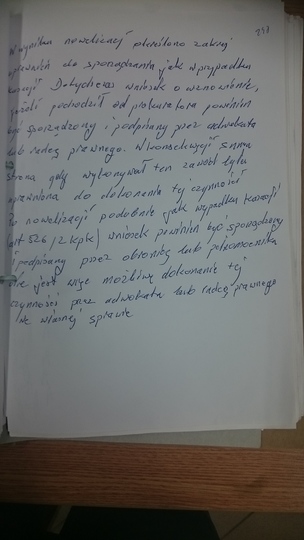 241
W wyniku nowelizacji określono zakres
uprawnień do sporządzania jak w przypadku
kasacji. Dotychczas wniosek o wznowienie,
jeżeli pochodził od prokuratora powinien
być sporządzony i podpisany przez adwokata
lub radcę prawnego. W konsekwencji sama
strona gdy wykonywał ten zawód była
uprawniona do dokonania tej czynności
Po nowelizacji podobnie jak wypadku kasacji
art 526 § 2 kpk) wniosek powinien być sporządzony
i podpisany przez obrońcę lub pełnomocnika
Nie jest więc możliwe dokonanie tej
czynności przez adwokata lub radcę prawnego
we własnej sprawie